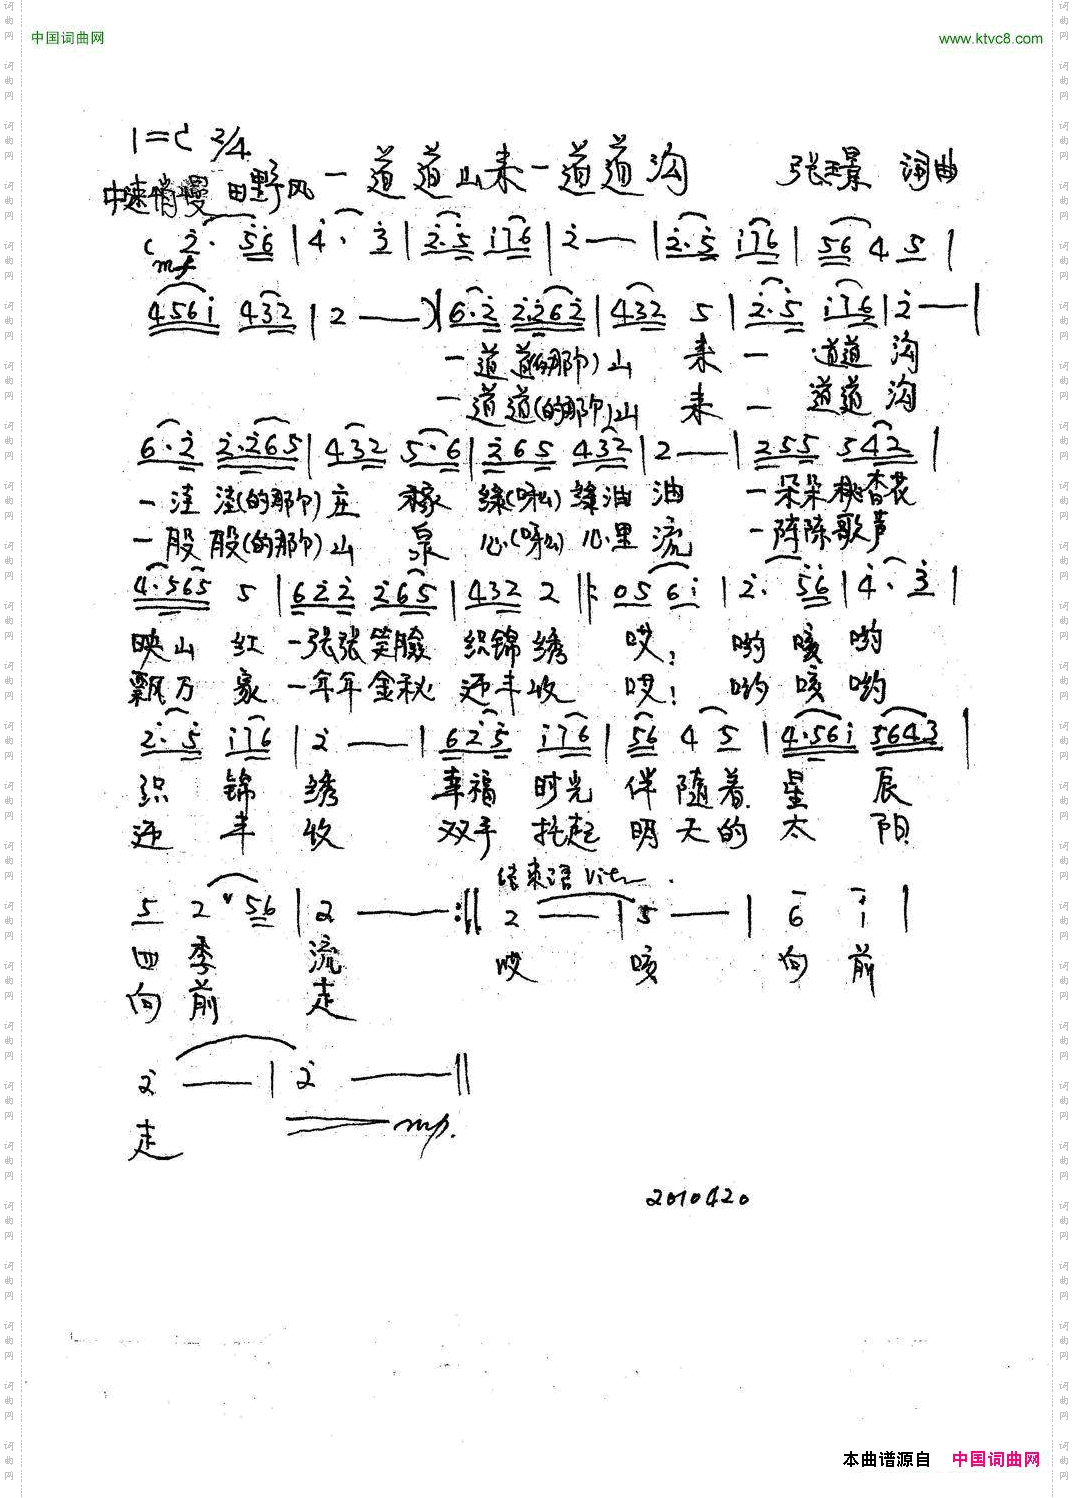 中国词曲网
www.ktvc8.com
1=C 2/4
中速稍慢 田野风 一道道山来一道道沟 张璟 词曲
( 2· 56 | 4· 3 | 2·5 176 | 2 — | 2·5 176 | 56 4 5 |
mf
4561 432 | 2 — ) | 6·2 2·262 | 432 5 | 2·5 176 | 2 — |
一道道(的那个)山 来 一 道道 沟
一道道(的那个)山 来 一 道道 沟
6·2 2·265 | 432 5·6 | 265 432 | 2 — | 255 542 |
一洼洼(的那个)庄 稼 绿(呀么)绿油油 一朵朵桃杏花
一股股(的那个)山 泉 心(呀么)心里流 一阵阵歌声
4·565 5 | 622 265 | 432 2 ‖: 05 61 | 2· 56 | 4· 3 |
映山 红 一张张笑脸 织锦绣 哎! 哟 咳 哟
飘万 家 一年年金秋 还丰收 哎! 哟 咳 哟
2·5 176 | 2 — | 625 176 | 56 4 5 | 4·561 5643 |
织 锦 绣 幸福 时光 伴 随着 星 辰
还 丰 收 双手 托起 明 天的 太 阳
结束语
5 2 ᵛ56 | 2 — :‖ 2 — | 5 — | 6 1 |
四 季 流 哎 咳 向 前
向 前 走
2 — | 2 — ‖
走 mp.
20100420
本曲谱源自 中国词曲网